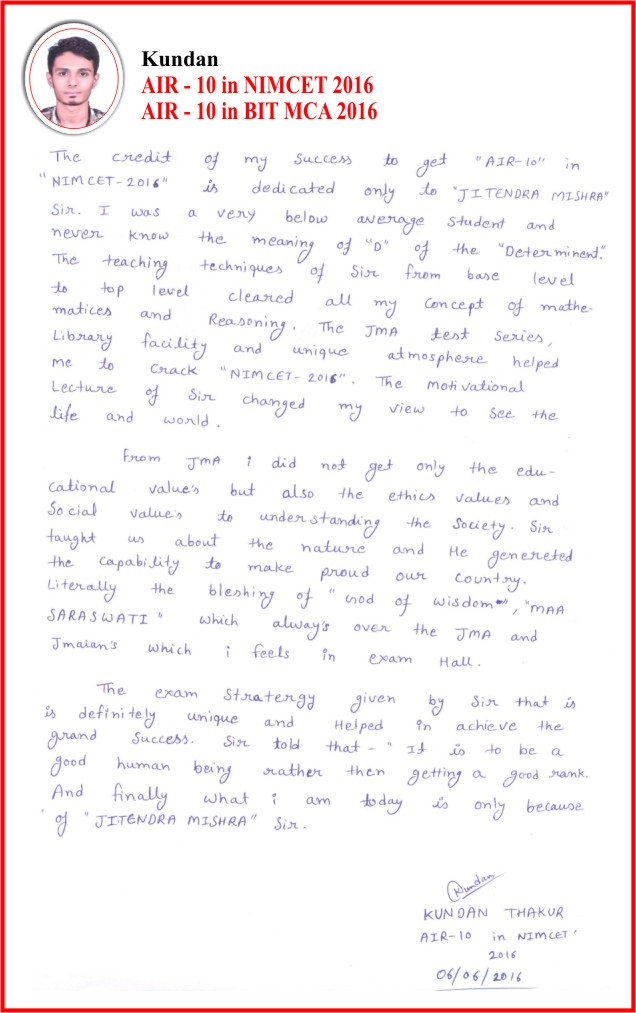 Kundan
AIR - 10 in NIMCET 2016
AIR - 10 in BIT MCA 2016
The credit of my success to get "AIR-10" in
"NIMCET-2016" is dedicated only to "JITENDRA MISHRA"
Sir. I was a very below average student and
never know the meaning of "D" of the "Determinent."
The teaching techniques of Sir from base level
to top level cleared all my concept of mathe-
matices and Reasoning. The JMA test series,
Library facility and unique atmosphere helped
me to crack "NIMCET-2016". The motivational
Lecture of Sir changed my view to see the
life and world.
From JMA i did not get only the edu-
cational value's but also the ethics values and
Social value's to understanding the Society. Sir
taught us about the nature and He genereted
the capability to make proud our country.
Literally the bleshing of "God of wisdom", "MAA
SARASWATI" which alway's over the JMA and
Jmaian's which i feels in exam Hall.
The exam stratergy given by Sir that is
is definitely unique and Helped in achieve the
grand success. Sir told that - "It is to be a
good human being rather then getting a good rank.
And finally what i am today is only because
of "JITENDRA MISHRA" Sir.
Kundan
KUNDAN THAKUR
AIR-10 in NIMCET'
2016
06/06/2016